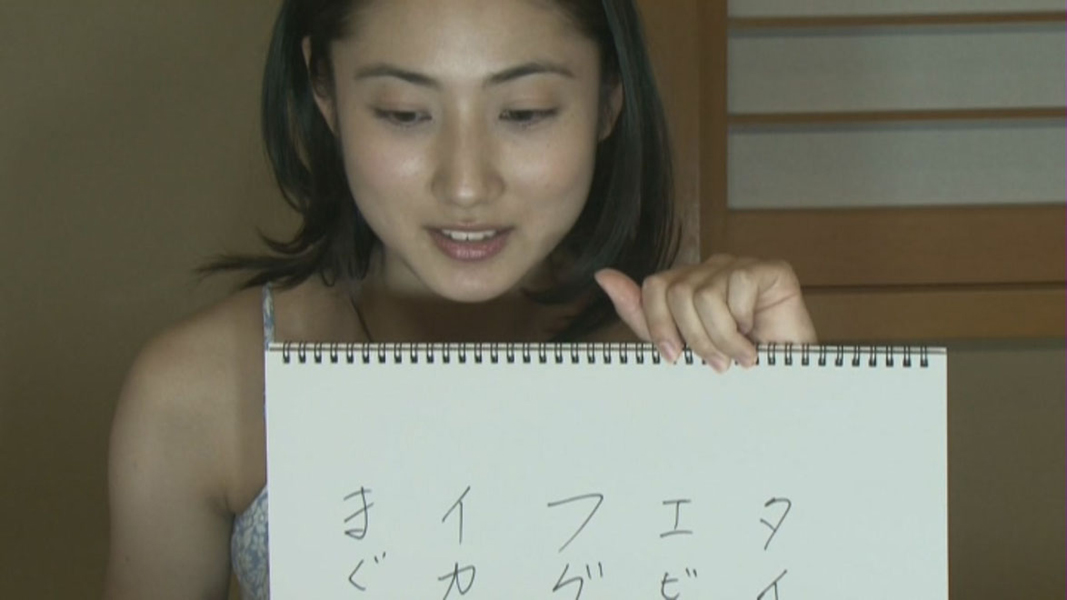 タイ
エビ
フグ
イカ
まぐ